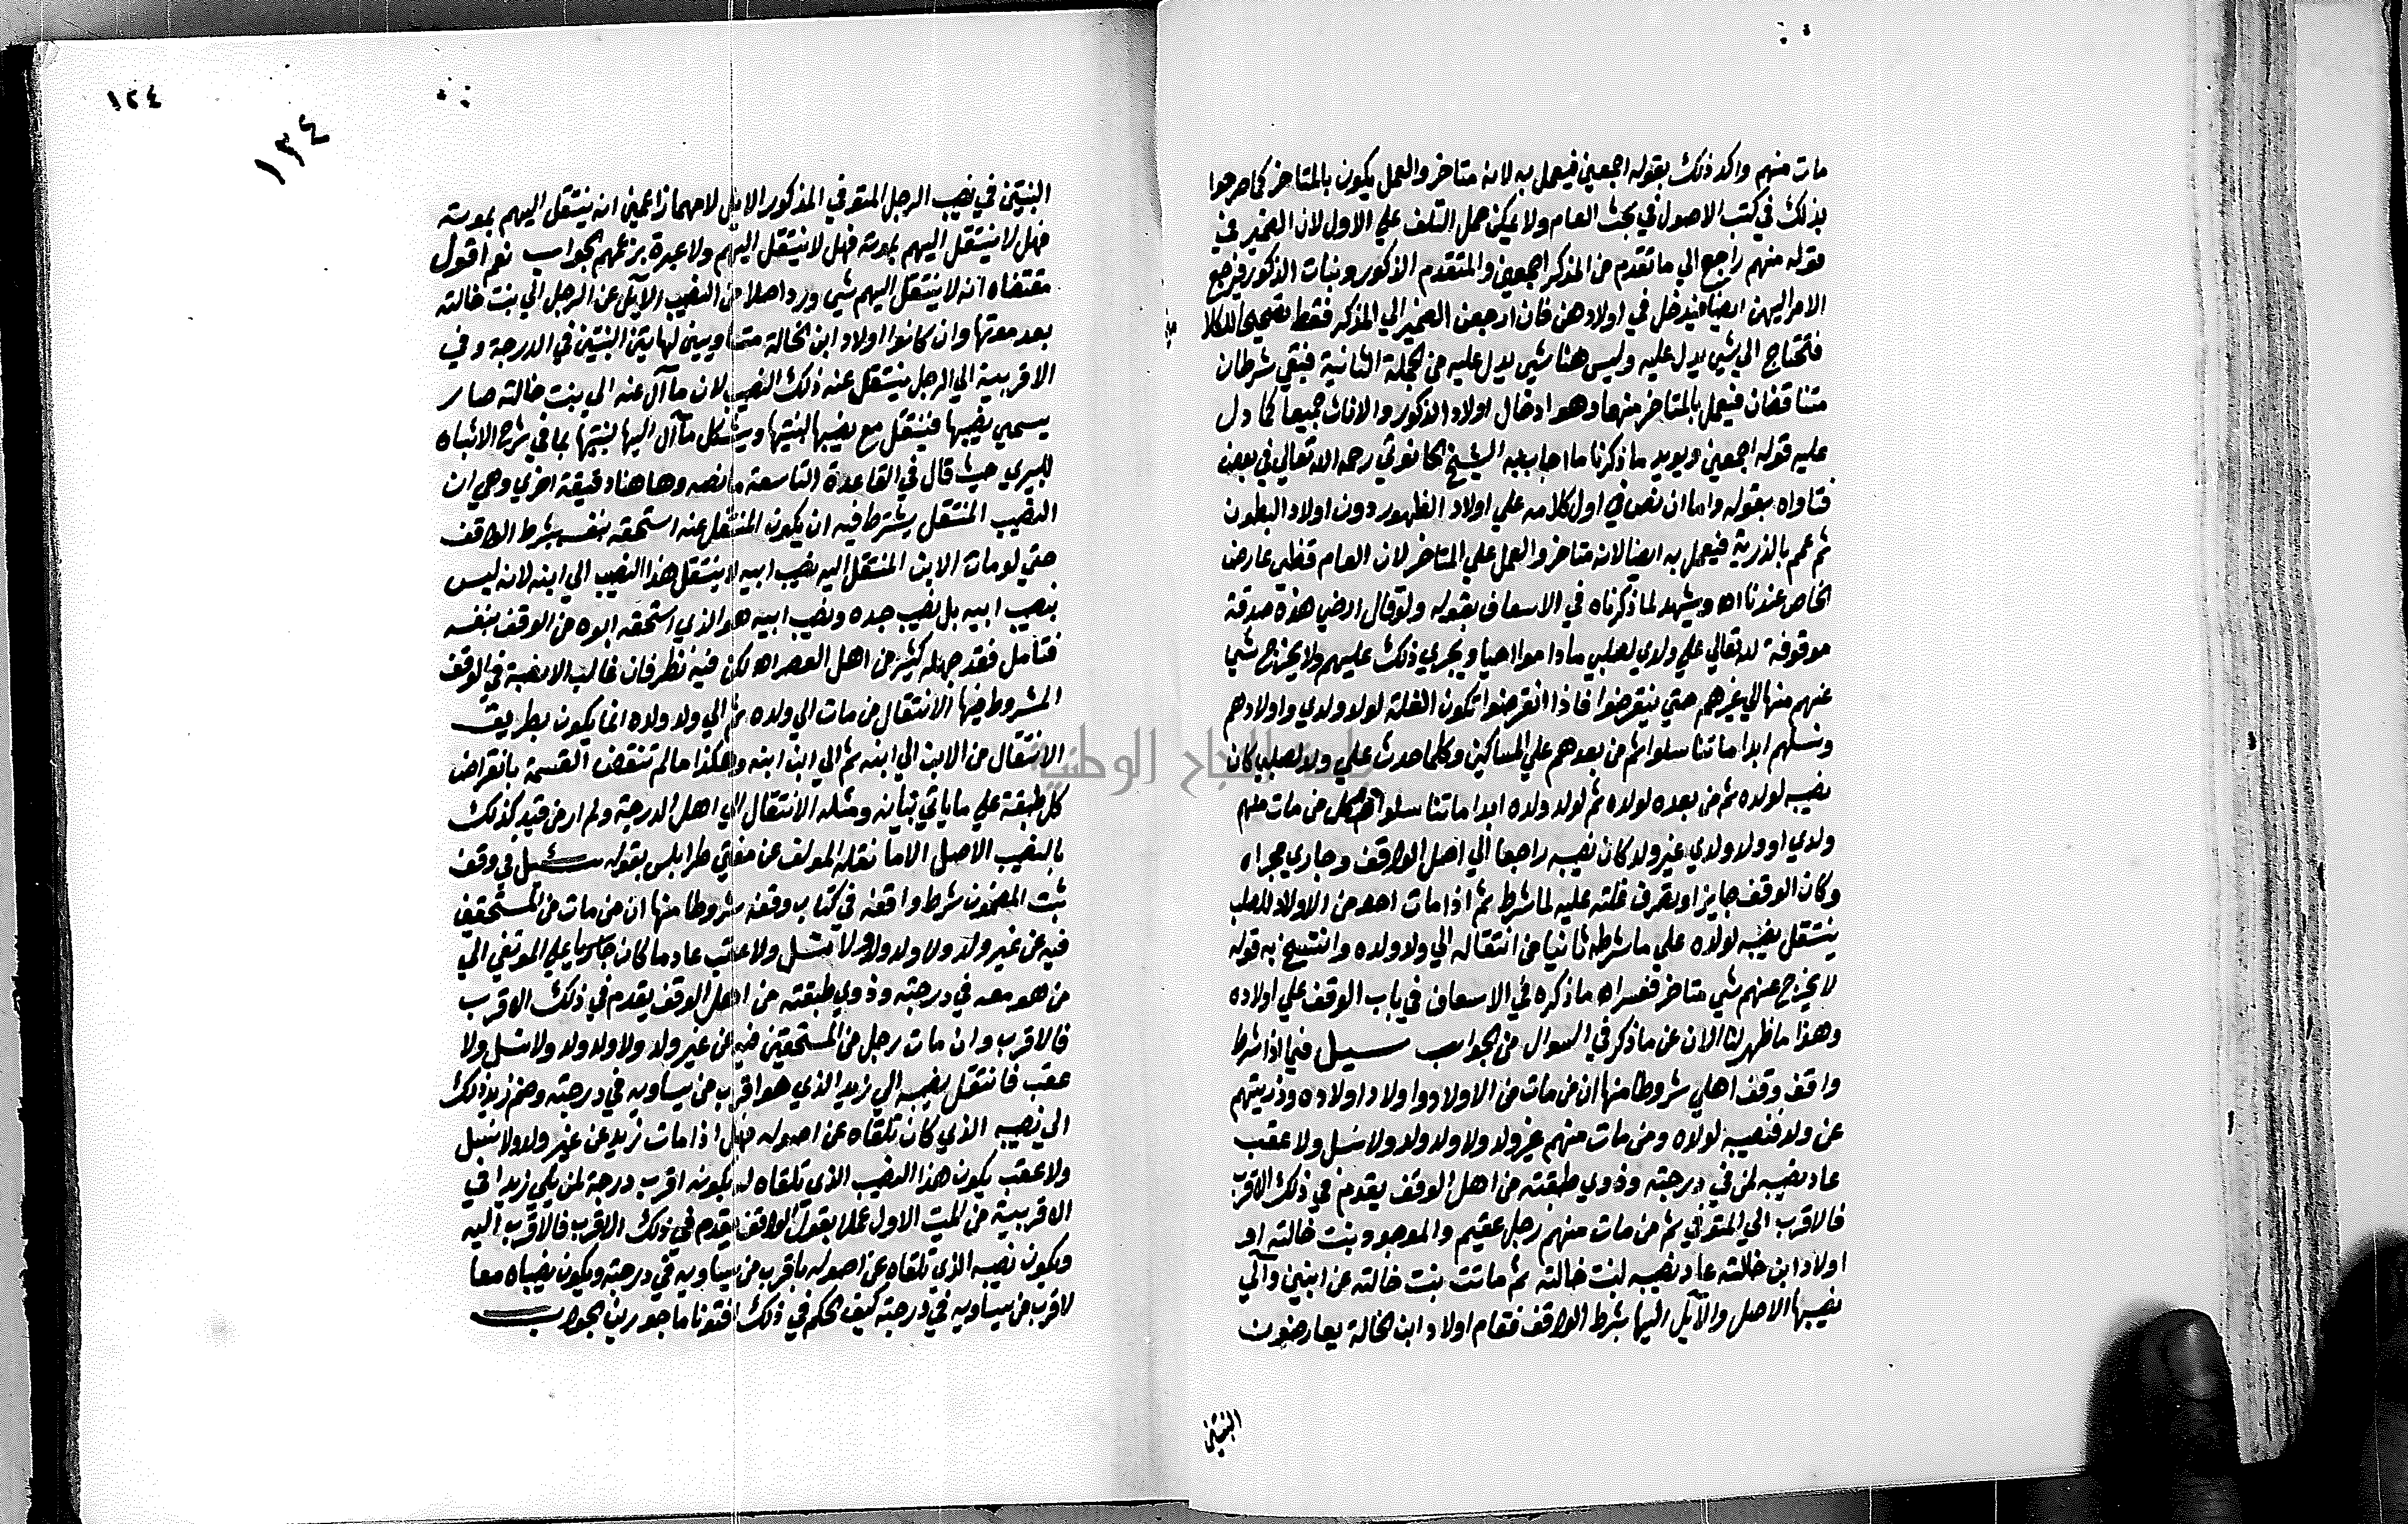 مات منهم واكد ذلك بقوله اجمعين فيعمل به لانه متاخر والعمل يكون بالمتاخر كما صرحوا
بذلك في كتب الاصول في بحث العام ولا يمكن حمل التلف علي الاول لان الضمير في
قوله منهم راجع الي ما تقدم من المذكر اجمعين والمتقدم الذكور وبنات الذكور فيرجع
الامر اليهن ايضا فيدخل في اولادهن فان ارجعن الضمير الي المذكر فقط تصحيحا للكلا
فتحتاج الي شي يدل عليه وليس هنا شي يدل عليه من الجملة الثانية فبقي شرطان
متناقضان فيعمل بالمتاخر منهما وهو ادخال اولاد الذكور والاناث جميعا كما دل
عليه قوله اجمعين ويويد ما ذكرنا ما اجاب به الشيخ الحانوتي رحمه الله تعالي في بعض
فتاواه بقوله واما ان نص في اول كلامه علي اولاد الظهور دون اولاد البطون
ثم عمم بالذرية فيعمل به ايضا لانه متاخر والعمل علي المتاخر لان العام قطعي عارض
الخاص عندنا اه ويشهد لما ذكرناه في الاسعاف بقوله ولو قال ارضي هذه صدقة
موقوفة لله تعالي علي ولدي لصلبي ما داموا احيا ويجري ذلك عليهم ولا يخرج شي
عنهم منها الي غيرهم حتي ينقرضوا فاذا انقرضوا تكون الغلة لولد ولدي واولادهم
ونسلهم ابدا ما تناسلوا ثم من بعدهم علي المساكين وكلما حدث علي ولد لصلبي كان
نصيبه لولده ثم من بعده لولاده ثم لولد ولده ابدا ما تناسلوا وكل من مات منهم
ولدي او ولد ولدي غير ولد كان نصيبه راجعا الي اصل الوقف وجاري مجراه
وكان الوقف جايزا وتصرف غلته عليه لما شرط ثم اذا مات احد من الاولاد للصلب
ينتقل نصيبه لولاده علي ما شرطه ثانيا من انتقاله الي ولد ولده وانتسخ به قوله
لا يخرج عنهم شي متاخر فسره ما ذكره في الاسعاف في باب الوقف علي اولاده
وهذا ما ظهر لنا الان عن ما ذكر في السوال من الجواب سيل فيما اذا شرط
واقف وقف اهلي شروطا منها ان من مات من الاولاد واولاد اولاده وذريتهم
عن ولد فنصيبه لولاده ومن مات منهم غير ولد ولا ولد ولد ولا نسل ولا عقب
عاد نصيبه لمن في درجته وذوي طبقته من اهل الوقف يقدم في ذلك الاقرب
فالاقرب الي المتوفي ثم من مات منهم رجل عقيم والموجود بنت خالته او
اولاد ابن خالته عاد نصيبه لبنت خالته ثم ماتت بنت خالته عن ابنتين وآل
نصيبها الاصل والآيل اليها بشرط الواقف فقام اولاد ابن الخالة يعارضون
البنتين
١٢٤
١٣٤
البنتين في نصيب الرجل المتوفي المذكور الاصل لامهما زاعمين انه ينتقل اليهم بموته
فهل لا ينتقل اليهم بموته فهل لا ينتقل اليهم ولا عبرة بزعمهم الجواب نعم اقول
مقتضاه انه لا ينتقل اليهم شي ورد اصلا من النصيب الآيل عن الرجل الي بنت خالته
بعد موتها وان كانوا اولاد ابن الخالة متساويين لهاتين البنتين في الدرجة وفي
الاقربية الي الرجل ينتقل عنه ذلك النصيب لان ما آل عنه الي بنت خالته صار
يسمي نصيبها فينتقل مع نصيبها لبنتيها ويشكل ما آل اليها لبنتيها بما في شرح الاشباه
للبيري حيث قال في القاعدة التاسعة ما نصه وها هنا دقيقة اخري وهي ان
النصيب المنتقل يشترط فيه ان يكون المنتقل عنه استحقه بنفسه بشرط الواقف
حتي لو مات الابن المنتقل اليه نصيب ابيه لا ينتقل هذا النصيب الي ابنه لانه ليس
بنصيب ابيه بل نصيب جده ونصيب ابيه هو الذي استحقه ابوه من الوقف بنفسه
فتامل فقد جهله كثير من اهل العصر اه لكن فيه نظر فان غالب الانصبة في الوقف
المشروط فيها الانتقال من مات الي ولده ثم الي ولد ولده انما يكون بطريق
الانتقال من الابن الي ابنه ثم الي ابن ابنه وهكذا ما لم تنقض القسمة بانقراض
كل طبقة علي ما ياتي بيانه ومثله الانتقال الي اهل الدرجة ولم ار من قيد كذلك
بالنصيب الاصل الا ما نقله المولف عن مفتي طرابلس بقوله سئيل في وقف
ثبت المضمون شرط واقفه في كتاب وقفه شروطا منها ان من مات من المستحقين
فيه عن غير ولد ولا ولد ولد ولا نسل ولا عقب عاد ما كان جاريا علي المتوفي الي
من هو معه في درجته وذوي طبقته من اهل الوقف يقدم في ذلك الاقرب
فالاقرب وان مات رجل من المستحقين فيه عن غير ولد ولا ولد ولد ولا نسل ولا
عقب فانتقل نصيبه الي زيد الذي هو اقرب من يساويه في درجته وضم زيد ذلك
الي نصيبه الذي كان تلقاه عن اصوله فهل اذا مات زيد عن غير ولد ولا نسل
ولا عقب يكون هذا النصيب الذي تلقاه له بكونه اقرب درجة لمن يلي زيدا في
الاقربية من الميت الاول عملا بقول الواقف يقدم في ذلك الاقرب فالاقرب اليه
ويكون نصيبه الذي تلقاه عن اصوله باقرب من يساويه في درجته ويكون نصيباه معا
لاقرب من يساويه في درجته كيف الحكم في ذلك افتونا ماجورين الجواب
جامعة النجاح الوطنية